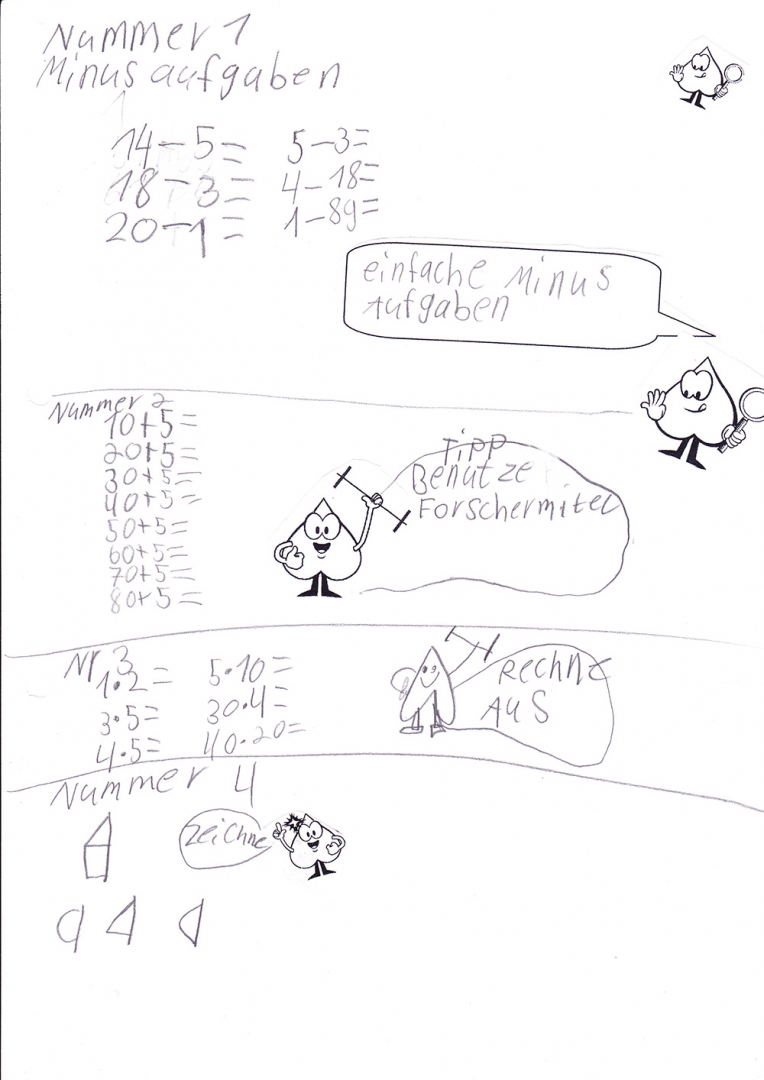 Nummer 1
Minus aufgaben
14-5= 5-3=
18-3= 4-18=
20-1= 1-89=
einfache Minus
Aufgaben
Nummer 2
10+5=
20+5=
30+5=
40+5=
50+5=
60+5=
70+5=
80+5=
Tipp
Benutze
Forschermitel
Nr 3
1·2= 5·10=
3·5= 30·4=
4·5= 40·20=
Rechne
AuS
Nummer 4
zeichne